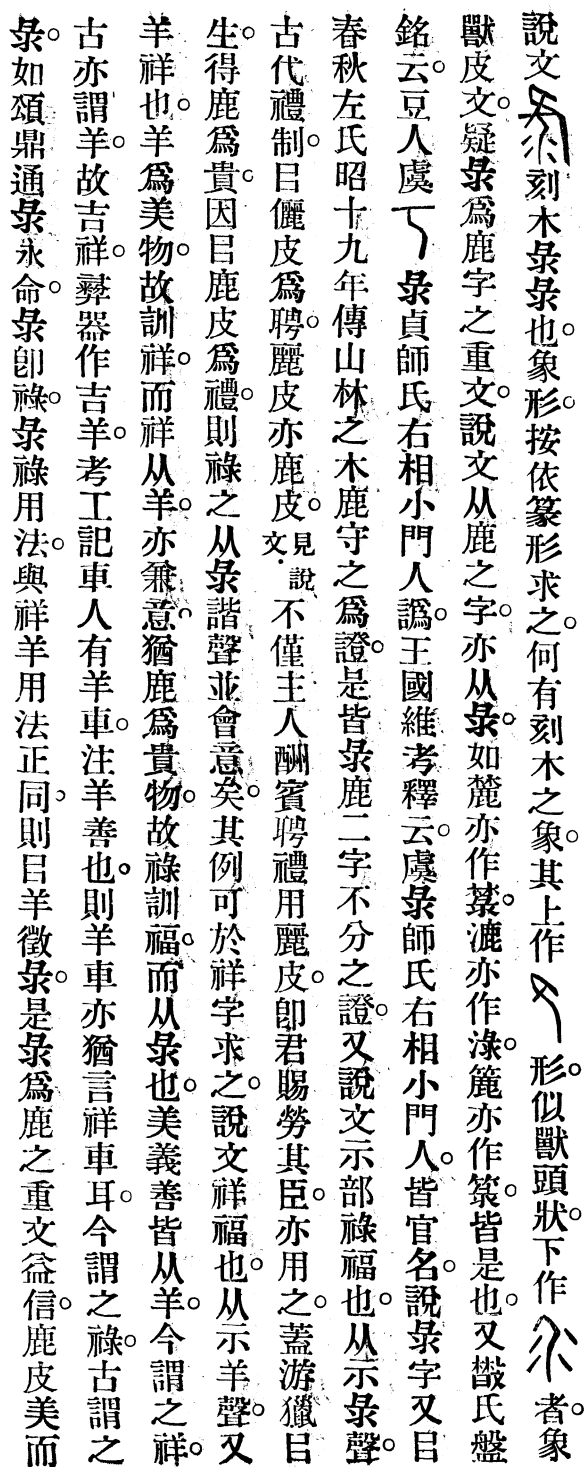 說文刻木彔彔也。象形。按依篆形求之。何有刻木之象。其上作形。似獸頭狀。下作者。象
獸皮文。疑彔爲鹿字之重文。說文从鹿之字。亦从彔。如麓亦作菉。漉亦作淥。簏亦作箓。皆是也。又散氏盤
銘云。豆人虞彔貞師氏右相小門人譌。王國維考釋云。虞彔師氏右相小門人。皆官名。說彔字又㠯
春秋左氏昭十九年傳山林之木鹿守之爲證。是皆彔鹿二字不分之證。又說文示部祿福也。从示彔聲。
古代禮制。㠯儷皮爲聘。麗皮亦鹿皮。見說文。不僅主人酬賓聘禮用麗皮。卽君賜勞其臣。亦用之。蓋游獵㠯
生。得鹿爲貴。因㠯鹿皮爲禮。則祿之从彔諧聲並會意矣。其例可於祥字求之。說文祥福也。从示羊聲。又
羊祥也。羊爲美物。故訓祥。而祥从羊。亦兼意。猶鹿爲貴物。故祿訓福。而从彔也。美義善皆从羊。今謂之祥。
古亦謂羊。故吉祥。彝器作吉羊。考工記車人有羊車。注羊善也。則羊車亦猶言祥車耳。今謂之祿。古謂之
彔。如頌鼎通彔永命。彔卽祿。彔祿用法。與祥羊用法正同。則㠯羊徵彔。是彔爲鹿之重文益信。鹿皮美而